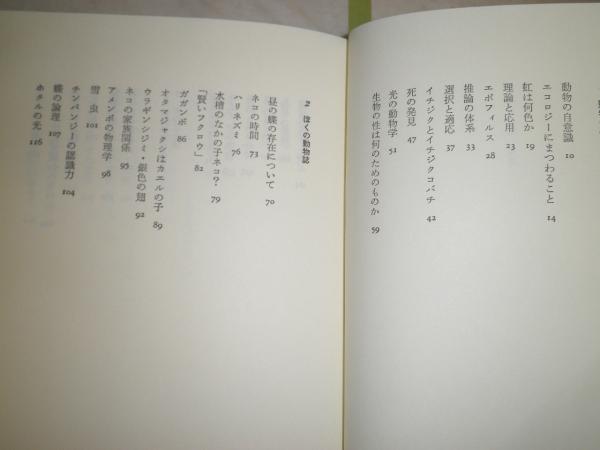 動物の自意識 10
エコロジーにまつわること 14
虹は何色か 19
理論と応用 23
エポフィルス 28
推論の体系 33
選択と適応 37
イチジクとイチジクコバチ 42
死の発見 47
光の動物学 51
生物の性は何のためのものか 59
2 ぼくの動物誌
昼の蝶の存在について 70
ネコの時間 73
ハリネズミ 76
水槽のなかの子ネコ? 79
「賢いフクロウ」 82
ガガンボ 86
オタマジャクシはカエルの子 89
ウラギンシジミ・銀色の翅 92
ネコの家族関係 95
アメンボの物理学 98
雪虫 101
チンパンジーの認識力 104
蝶の論理 107
ホタルの光 116